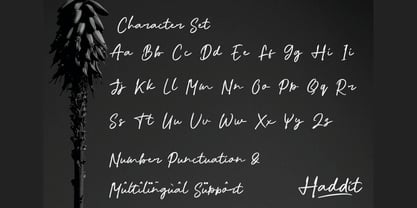 Character Set
Aa Bb Cc Dd Ee Ff Gg Hi Ii
Jj Kk Ll Mm Nn Oo Pp Qq Rr
Ss Tt Uu Vv Ww Xx Yy Zz
Number Punctuation &
Multilingual Support
Haddit